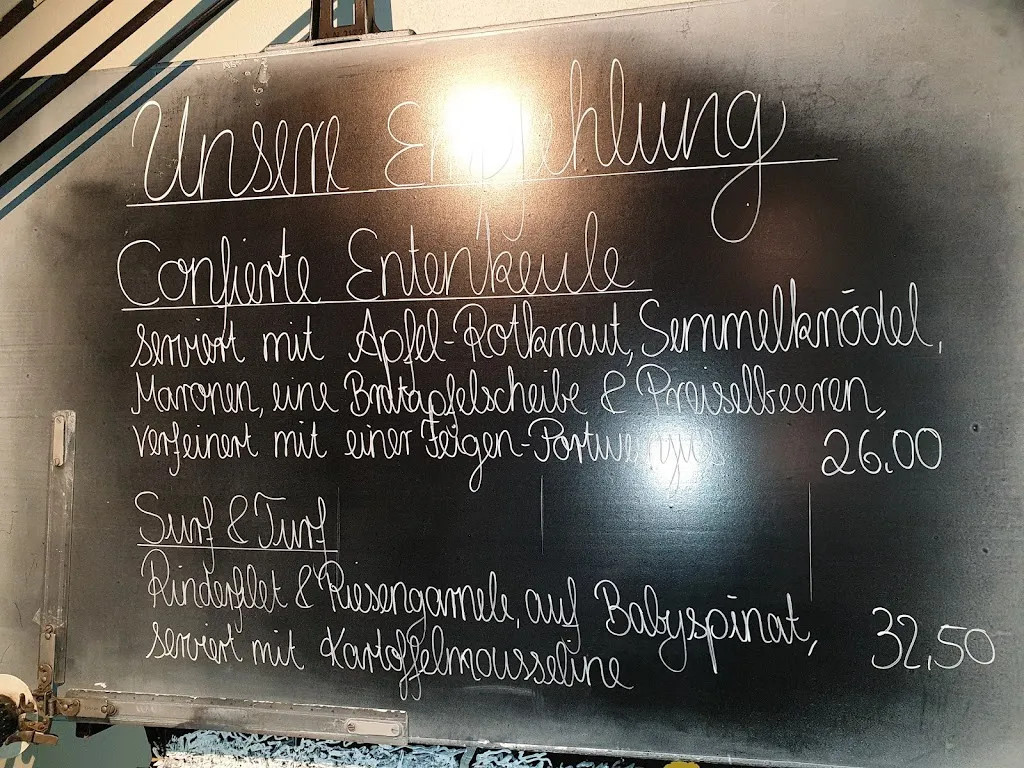 Unsere Empfehlung
Confierte Entenkeule
serviert mit Apfel-Rotkraut, Semmelknödel,
Maronen, eine Bratapfelscheibe & Preiselbeeren,
verfeinert mit einer Feigen-Portweinjus 26,00
Surf & Turf
Rinderfilet & Riesengarnele, auf Babyspinat,
serviert mit Kartoffelmousseline 32,50